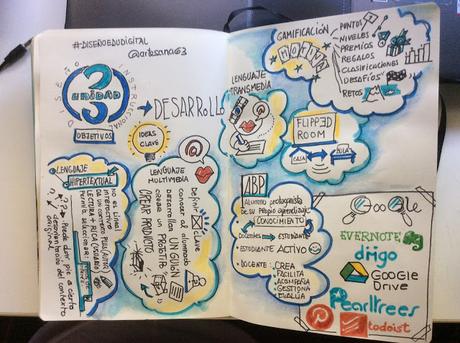 #DISEÑOEDUDIGITAL
@artesana63
DISEÑO INSTRUCCIONAL
3
UNIDAD
→ DESARROLLO
OBJETIVOS
IDEAS
CLAVE
LENGUAJE
HIPERTEXTUAL
NO es LINEAL
INTERACTIVO
LECTURA + RICA (USUARIO)
? Puede dar pie a cierta
descontextualización del contexto
original
LENGUAJE
MULTIMEDIA
Definir CLAVE
conocer al alumnado
desarrollar UN GUIÓN
crear un PROTOTIPO
CREAR PRODUCTO
GAMIFICACIÓN
MOTIVA
PUNTOS
NIVELES
PREMIOS
REGALOS
CLASIFICACIONES
DESAFÍOS
RETOS
LENGUAJE
TRANSMEDIA
FLIPPED
ROOM
CASA
AULA
ABP
Alumno protagonista
de su propio aprendizaje
CONOCIMIENTO
Docentes → ESTUDIANTE
• ESTUDIANTE ACTIVO
• DOCENTE: CREA
FACILITA
ACOMPAÑA
GESTIONA
EVALÚA
Google
EVERNOTE
diigo
GOOGLE
DRIVE
Pearltrees
todoist